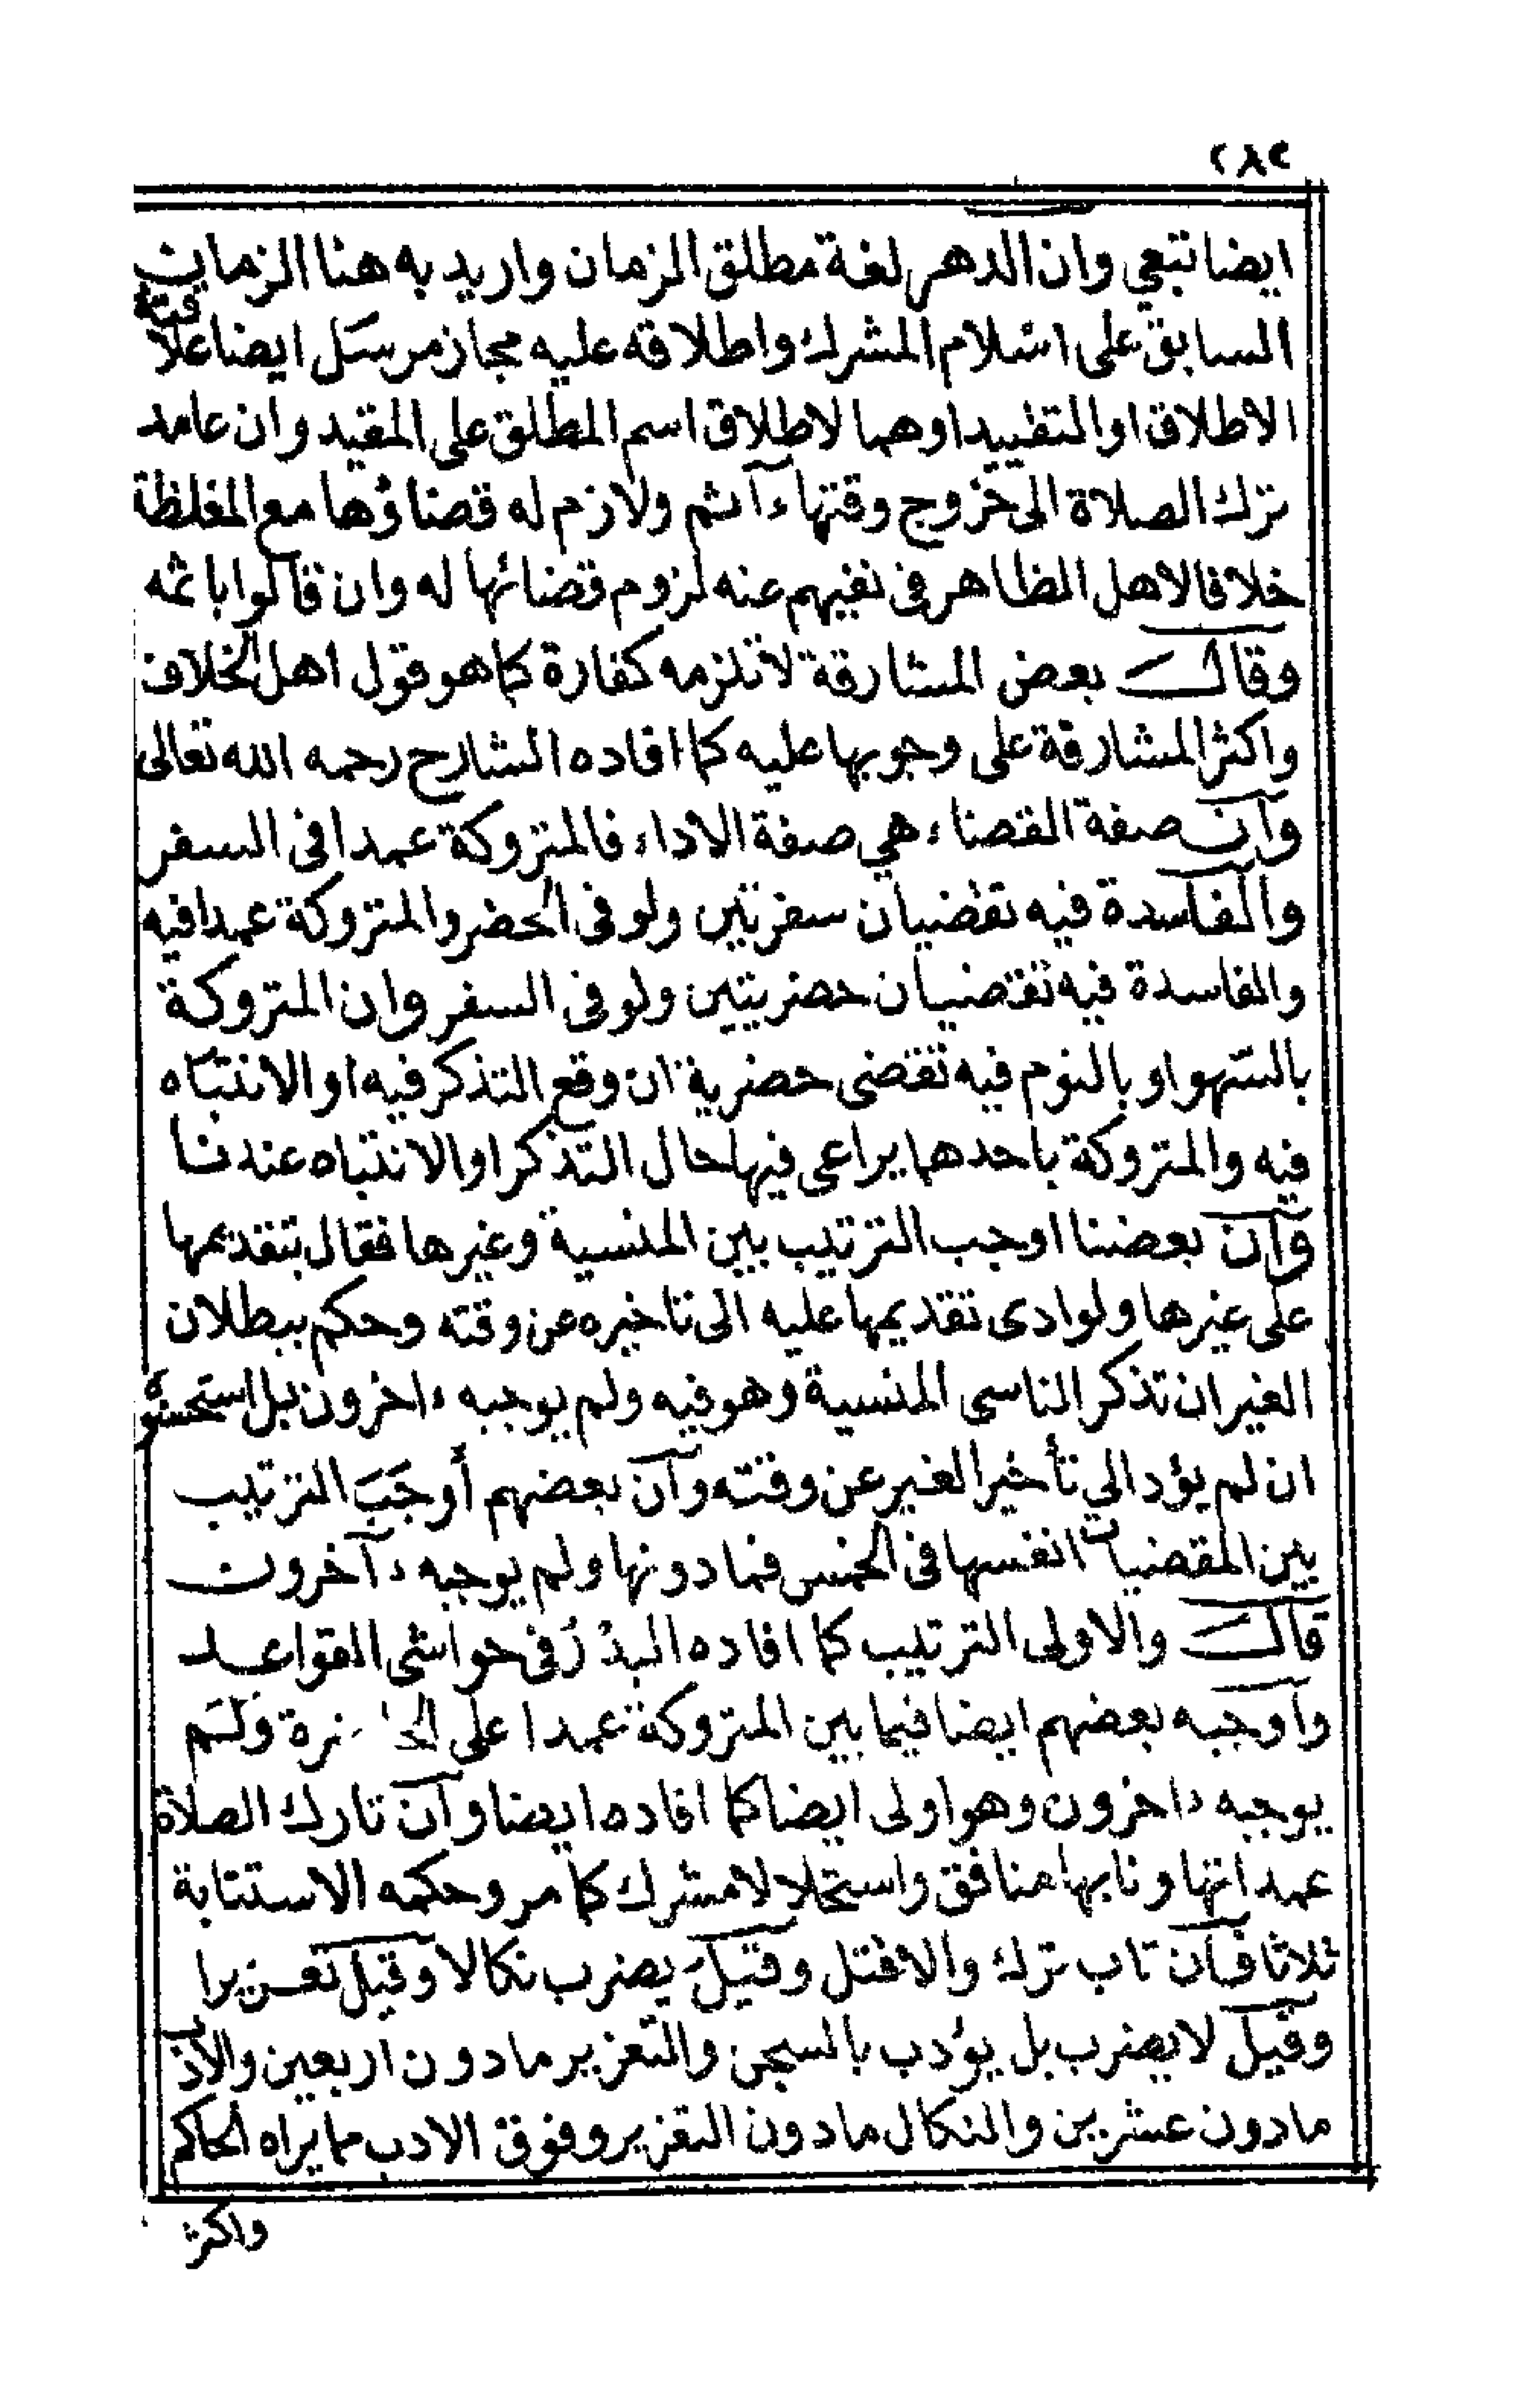 ٢٨٢
ايضا تبعي وان الدهر لغة مطلق الزمان واريد به هنا الزمان
السابق على اسلام المشرك واطلاقه عليه مجاز مرسل ايضا علاقته
الاطلاق او التقييد او هما لاطلاق اسم المطلق على المقيد وان عامد
ترك الصلاة الى خروج وقتها ءآثم ولازم له قضاؤها مع المغلظة
خلافا لاهل الظاهر فى نفيهم عنه لزوم قضائها له وان قالوا باثمه
وقال بعض المشارقة لا تلزمه كفارة كما هو قول اهل الخلاف
واكثر المشارقة على وجوبها عليه كما افاده الشارح رحمه الله تعالى
وان صفة القضاء هي صفة الاداء فالمتروكة عمدا فى السفر
والفاسدة فيه تقضيان سفريتين ولو فى الحضر والمتروكة عمدا فيه
والفاسدة فيه تقضيان حضريتين ولو فى السفر وان المتروكة
بالسهو او بالنوم فيه تقضى حضرية ان وقع التذكر فيه او الانتباه
فيه والمتروكة باحدهما يراعى فيها حال التذكر او الانتباه عندنا
وان بعضنا اوجب الترتيب بين المنسية وغيرها فقال بتقديمها
على غيرها ولو ادى تقديمها عليه الى تاخيره عن وقته وحكم ببطلان
الغير ان تذكر الناسى المنسية وهو فيه ولم يوجبه ءاخرون بل استحسنوه
ان لم يؤد الي تأخير الغير عن وقته وان بعضهم أوجَبَ الترتيب
بين المقضيات انفسها فى الخمس فما دونها ولم يوجبه ءآخرون
قال والاولى الترتيب كما افاده البدْرُ فى حواشى القواعد
واوجبه بعضهم ايضا فيما بين المتروكة عمدا على ولم
يوجبه ءاخرون وهو اولى ايضا كما افاده ايضا وان تارك الصلاة
عمدا انتها ونا بها منافق واستحلالا مشرك كما مر وحكمه الاستتابة
ثلاثا فان تاب ترك والا قتل وقيل يضرب نكالا وقيل تعزيرا
وقيل لا يضرب بل يؤدب بالسجن والتعزير ما دون اربعين والادب
مادون عشرين والنكال مادون التعزير وفوق الادب مما يراه الحاكم
واكثر